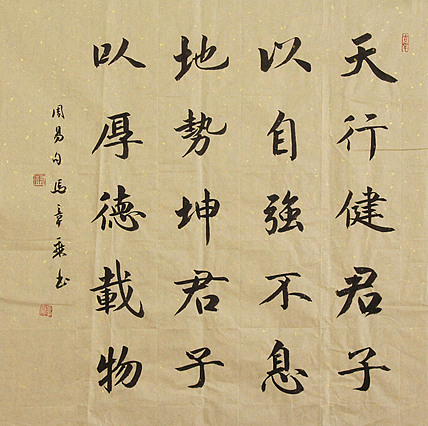 天行健君子
以自強不息
地勢坤君子
以厚德載物
周易句馬章乘书